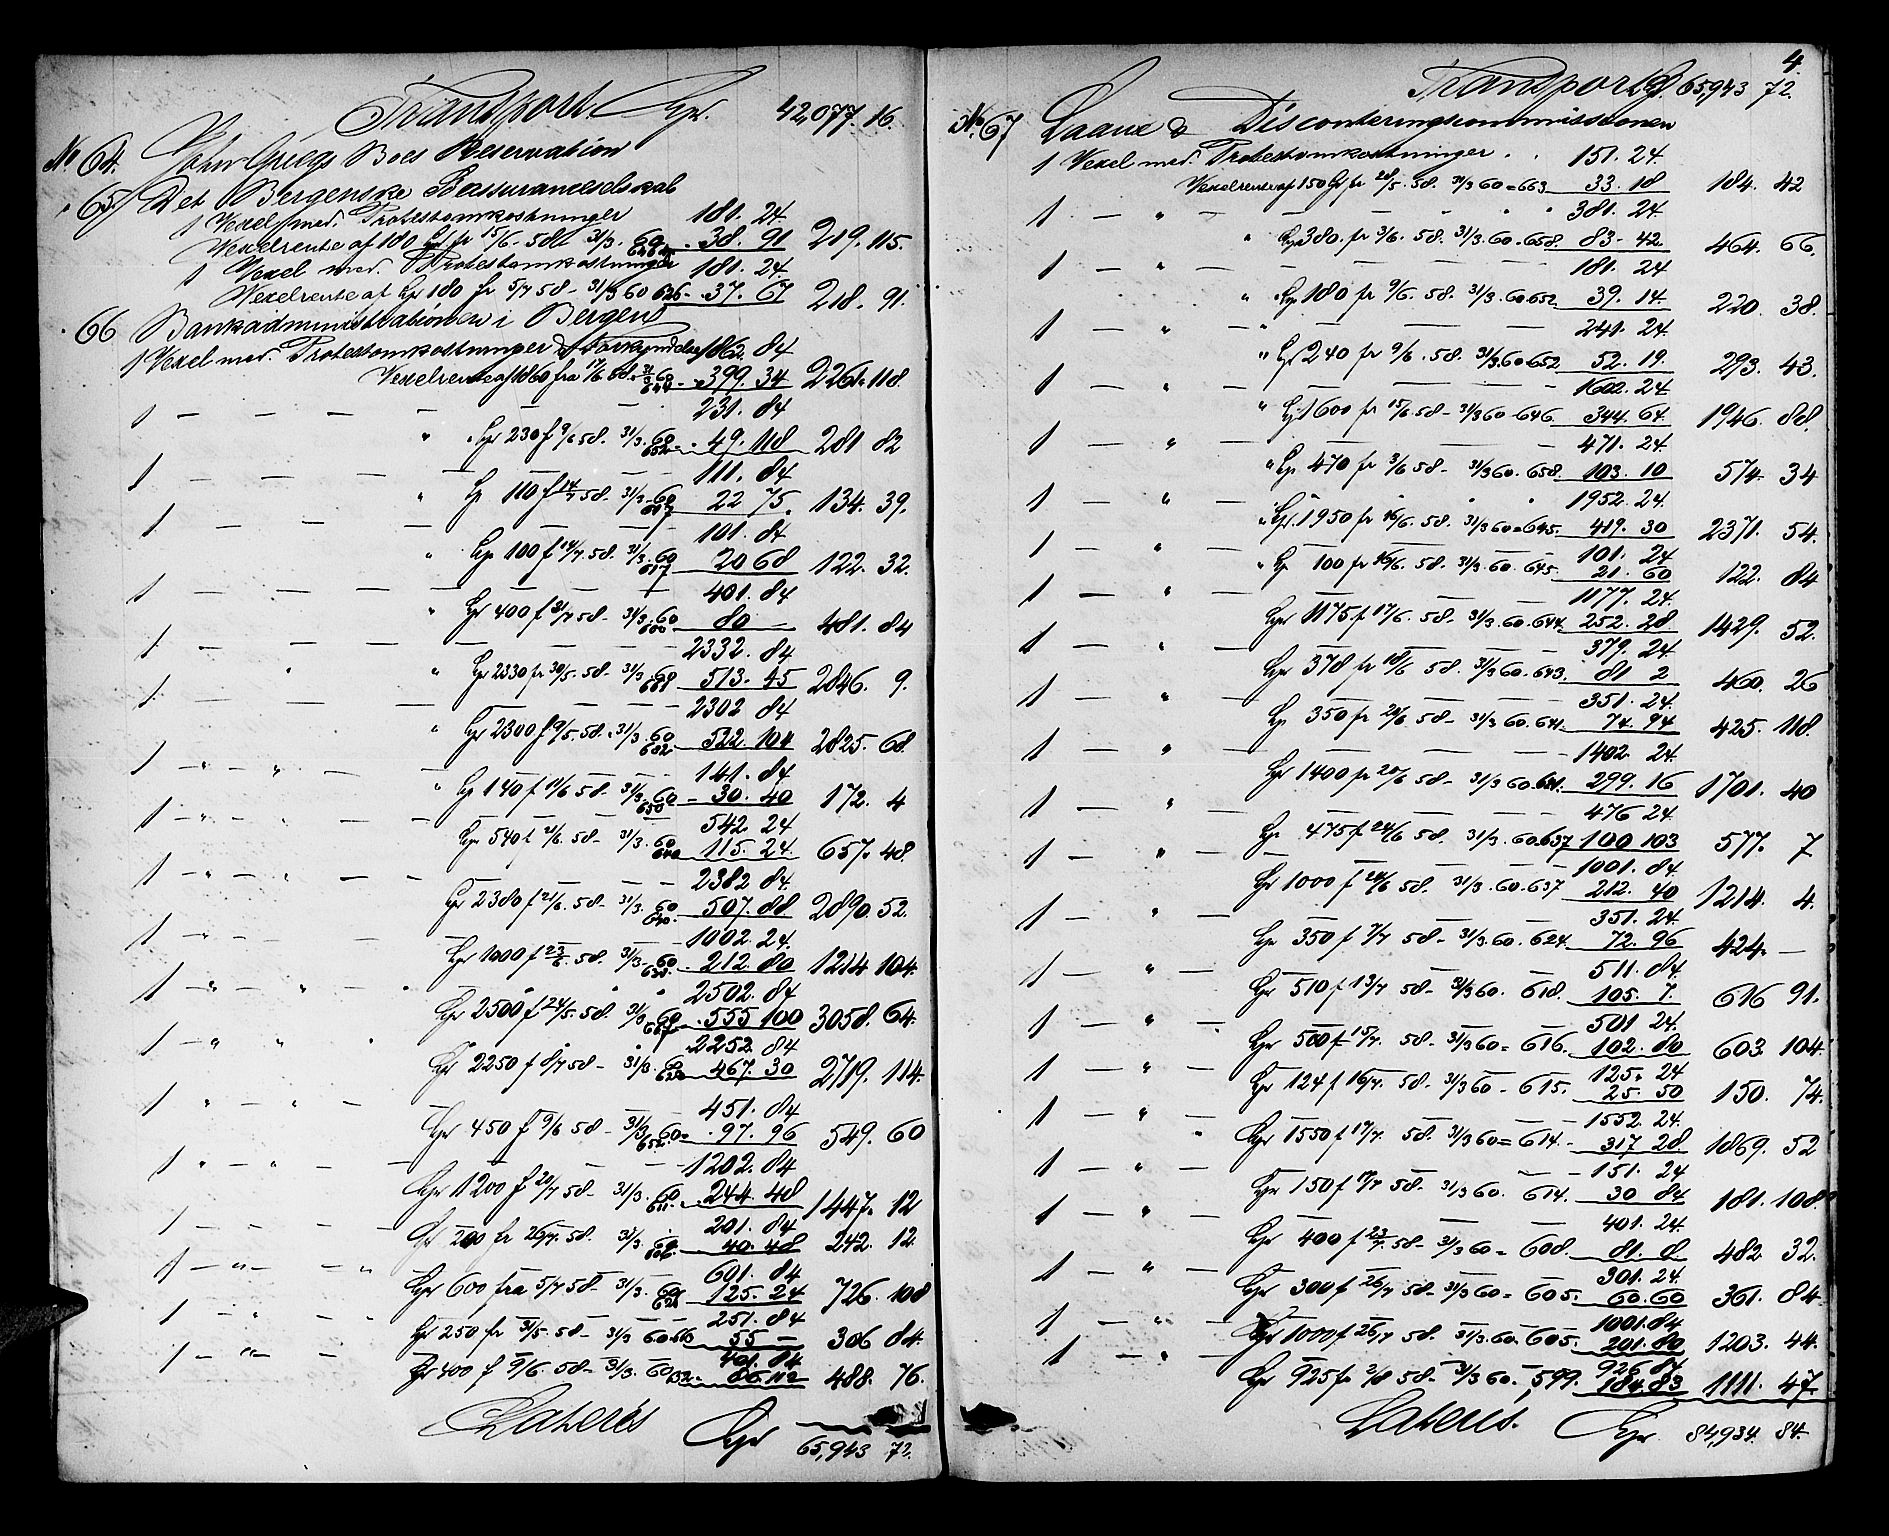 Transport Spr. 42,077. 16.
No 64. John Griegs Boes Reservation
" 65 Det Bergenske Assuranceselskab
1 Vexel med. Protestomkostninger 181. 24.
Vexelrente af 180 Spr fr 15/6. 58 - 31/3. 60 38. 91 219. 115.
1 Vexel med. Protestomkostninger 181. 24.
Vexelrente af Spr 180 fr 5/7 58 - 31/3 60 626 - 37. 67 218. 91.
" 66 Bankadministrationen i Bergen
1 Vexel med. Protestomkostninger & Forkyndelse 1862. 84
Vexelrente af 1860 fra 17/6 58 - 31/3 60 644 - 399. 34 2261. 118.
1 — — — — 231. 84
" Spr 230 f 9/6 58. 31/3. 60 652 - 49. 118 281 82
1 — — — 111. 84
" Sp 110 f 14/7 58. 31/3. 60 617 22 75. 134. 39.
1 — — — 101. 84
" Spr 100 f 14/7. 58. 31/3. 60 617 20 68 122. 32.
1 — — — 401. 84
" Spr 400 f 31/7 58 - 31/3. 60 600 80 — 481. 84
1 — — — 2332. 84
" Spr 2330 fr 30/5. 58 - 31/3. 60 661 513. 45 2846. 9.
1 — — — 2302 84
" Spr 2300 f 9/5. 58. 31/3. 60 682 - 522. 104 2825. 68.
1 — " — " — — 141. 84
" Spr 140 f 11/6 58 - 31/3. 60 650 - 30. 40 172. 4
1 — " — " — — 542. 24
Spr 540 f 21/6. 58 - 31/3. 60 640 - 115. 24. 657. 48.
1 — " — " — — 2382 84.
Spr 2380 f 21/6. 58 - 31/3. 60 640. - 507. 88 2890. 52.
1 — " — — 1002. 24.
Spr 1000 f 23/6. 58. 31/3. 60 638. - 212. 80 1214 104.
1 — " — " " 2502. 84
Spr 2500 f 24/5. 58. 31/3 60 667 - 555 100 3058. 64.
1 — " " " 2252. 84
Spr 2250 f 8/7 58 - 31/3. 60 623 - 467. 30 2719. 114.
1 — " — " — 451. 84
Spr 450 f 9/6 58 - 31/3. 60 652 - 97. 96 549. 60
1 " — " — — 1202. 84
Spr 1200 f 20/7 58 - 31/3. 60 611. - 244. 48 1447. 12
1 — — — 201. 84
Spr 200 fr 26/7. 58. 31/3. 60 605. 40. 48 242. 12.
1 — " — — " 601. 84
Spr 600 fra 5/7 58 - 31/3. 60 626 - 125. 24 726. 108
1 — " — 251. 84
Spr 250 fr 31/5. 58 - 31/3 60 660 55 — 306 84.
1 — " — — 401. 84
Spr 400 f 9/6. 58 - 31/3. 60 652 - 86. 112 488. 76.
Lateris Spr 65,943 72.
4.
Transport Sp. 65,943 72.
No. 67 Laane & Disconteringscommissionen
1 Vexel med. Protestomkostninger . . 151. 24.
Vexelrente af 150 Sp fr 28/5. 58. 31/3 60 = 663 33. 18 184. 42
1 — " — — — 381. 24.
" Spr 380. fr 3/6. 58. 31/3. 60. 658. 83 - 42. 464. 66.
1 — " — — — 181. 24
" Sp 180 fr 9/6. 58. 31/3. 60. 652. 39. 14. 220. 38.
1 — " — " — 241. 24
" Spr 240 fr 9/6. 58. 31/3. 60. 652. 52. 19. 293. 43.
1 — " — — 1602. 24
" Sp 1600 fr 15/6 58 - 31/3 60 - 646 344. 64. 1946. 88.
1 — " — — 471. 24.
" Sp 470 fr 3/6 58 - 31/3 60. 658. 103. 10 574. 34
1 — " — 1952. 24.
" Spr. 1950 fr 16/6. 58. 31/3 60 = 645. 419. 30 2371. 54.
1 — " — — 101. 24
" Sp 100 fr 16/6. 58. 31/3. 60. 645. 21. 60 122. 84
1 — " — — 1177. 24.
Spr 1175 f 17/6. 58. 31/3. 60. 644. 252. 28. 1429. 52.
1 — " — — 379. 24.
Spr 378 fr 18/6 58. 31/3. 60. 643. 81 2 460. 26
1 — " — — 351. 24.
Sp 350 fr 20/6 58 - 31/3 60. 641. 74. 94 425. 118.
1 — " — — 1402. 24.
Spr 1400 fr 20/6 58 - 31/3 60. 641. 299. 16 1701. 40
1 — " — 476 24.
Sp 475 f 24/6 58. 31/3. 60. 637 100 103 577. 7
1 — " — — 1001. 84.
Spr 1000 f 24/6 58. 31/3. 60. 637 212. 40 1214. 4.
1 — " — 351. 24.
Spr 350 f 7/7 58 - 31/3. 60. 624. 72. 96 424. —
1 — " — 511. 84.
Spr 510 f 13/7 58 - 31/3 60. 618. 105. 7. 616 91.
1 — " — — 501 24.
Spr 500 f 15/7. 58 - 31/3 60 = 616. 102. 80 603. 104.
1 — " — 125. 24
Spr 124 f 16/7. 58 - 31/3 60 - 615. 25. 50 150. 74.
1 — " — — 1552. 24.
" Spr 1550 f 17/7. 58. 31/3 60 = 614. 317 28 1869. 52
1 — " — — 151. 24
Spr 150 f 17/7 58 - 31/3 60. 614. 30 84 181. 108.
1 — " — 401. 24.
Spr 400 f 23/7. 58 - 31/3 60 = 608. 81. 8. 482. 32.
1 — " — 301. 24.
Spr 300 f 26/7 58 - 31/3 60 = 605. 60. 60 361. 84.
1 — " — 1001. 84
Spr 1000 f 26/7 58. 31/3. 60. 605. 201. 80 1203. 44.
1 — " — 926. 84
Spr 925 fr 2/8 58 - 31/3 60. 599. 184. 83 1111. 47.
Lateris. Spr 84,934. 84.